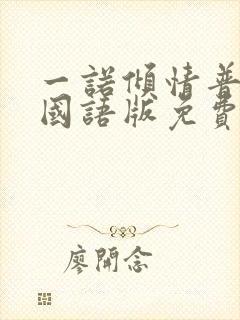 一諾傾情普
國語版免費
廖開念